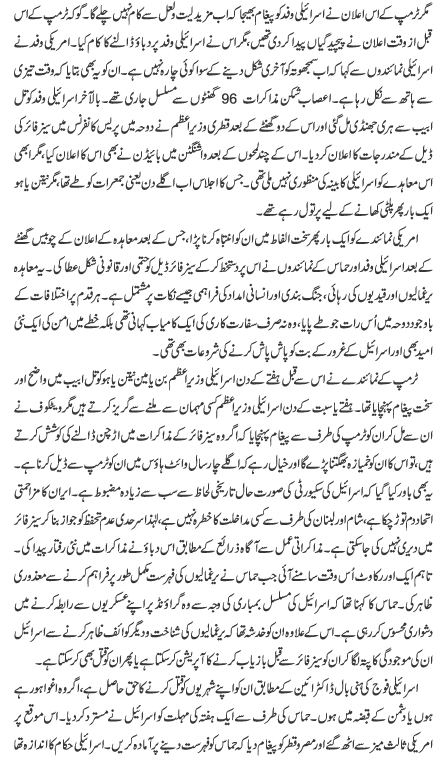 مگر ٹرمپ کے اس اعلان نے اسرائیلی وفد کو پیغام بھیجا کہ اب مزید لیت و لعل سے کام نہیں چلے گا۔ گو کہ ٹرمپ کے اس
قبل از وقت اعلان نے پیچیدگیاں پیدا کر دی تھیں، مگر اس نے اسرائیلی وفد پر دباؤ ڈالنے کا کام کیا۔ امریکی وفد نے
اسرائیلی نمائندوں سے کہا کہ اب سمجھوتہ کو آخری شکل دینے کے سوا کوئی چارہ نہیں ہے۔ ان کو یہ بھی بتایا کہ وقت تیزی
سے ہاتھ سے نکل رہا ہے۔ اعصاب شکن مذاکرات 96 گھنٹوں سے مسلسل جاری تھے۔ بالآخر اسرائیلی وفد کو تل
ابیب سے ہری جھنڈی مل گئی اور اس کے دو گھنٹے کے بعد قطری وزیر اعظم نے دوحہ میں پریس کانفرنس میں سیز فائر کی
ڈیل کے مندرجات کا اعلان کر دیا۔ اس کے چند لمحوں کے بعد واشنگٹن میں بائیڈن نے بھی اس کا اعلان کیا، مگر ابھی
اس معاہدے کو اسرائیلی کابینہ کی منظوری نہیں ملی تھی۔ جس کا اجلاس اب اگلے دن یعنی جمعرات کو طے تھا، مگر نیتن یا ہو
ایک بار پھر پلٹی کھانے کے لیے پر تول رہے تھے۔
امریکی نمائندے کو ایک بار پھر سخت الفاظ میں ان کو انتباہ کرنا پڑا، جس کے بعد معاہدہ کے اعلان کے چوبیس گھنٹے
کے بعد اسرائیلی وفد اور حماس کے نمائندوں نے اس پر دستخط کر کے سیز فائر ڈیل کو حتمی اور قانونی شکل عطا کی۔ یہ معاہدہ
یرغمالیوں اور قیدیوں کی رہائی، جنگ بندی اور انسانی امداد کی فراہمی جیسے نکات پر مشتمل ہے۔ ہر قدم پر اختلافات کے
باوجود دوحہ میں اُس رات جو طے پایا، وہ نہ صرف سفارت کاری کی ایک کامیاب کہانی تھی بلکہ خطے میں امن کی ایک نئی
امید بھی اور اسرائیل کے غرور کے بت کو پاش پاش کرنے کی شروعات بھی تھی۔
ٹرمپ کے نمائندے نے اس سے قبل ہفتے کے دن اسرائیلی وزیر اعظم بن یامین نیتن یا ہو کو تل ابیب میں واضح اور
سخت پیغام پہنچایا تھا۔ ہفتے یا سبت کے دن اسرائیلی وزیر اعظم کسی مہمان سے ملنے سے گریز کرتے ہیں مگر ویٹکوف نے
ان سے مل کر ان کو ٹرمپ کی طرف سے پیغام پہنچایا کہ اگر وہ سیز فائر کے مذاکرات میں اڑچن ڈالنے کی کوشش کرتے
ہیں، تو اس کا ان کو خمیازہ بھگتنا پڑے گا اور خیال رہے کہ اگلے چار سال وائٹ ہاؤس میں ان کو ٹرمپ سے ڈیل کرنا ہے۔
یہ بھی باور کیا گیا کہ اسرائیل کی سکیورٹی کی صورت حال تاریخی لحاظ سے سب سے زیادہ مضبوط ہے۔ ایران کا مزاحمتی
اتحاد دم توڑ چکا ہے، شام اور لبنان کی طرف سے کسی مداخلت کا خطرہ نہیں ہے، لہٰذا سرحدی عدم تحفظ کو جواز بنا کر سیز فائر
میں دیری نہیں کی جا سکتی ہے۔ مذاکراتی عمل سے آگاہ ذرائع کے مطابق اس دباؤ نے مذاکرات میں نئی رفتار پیدا کی۔
تاہم ایک اور رکاوٹ اُس وقت سامنے آئی جب حماس نے یرغمالیوں کی فہرست مکمل طور پر فراہم کرنے سے معذوری
ظاہر کی۔ حماس کا کہنا تھا کہ اسرائیل کی مسلسل بمباری کی وجہ سے وہ گراؤنڈ پر اپنے عسکریوں سے رابطہ کرنے میں
دشواری محسوس کر رہی ہے۔ اس کے علاوہ ان کو خدشہ تھا کہ یرغمالیوں کی شناخت و دیگر کوائف ظاہر کرنے سے اسرائیل
ان کی موجودگی کا پتہ لگا کر ان کو سیز فائر سے قبل بازیاب کرنے کا آپریشن کر سکتا ہے یا پھر ان کو قتل بھی کر سکتا ہے۔
اسرائیلی فوج کی ہنی بال ڈاکٹرائین کے مطابق ان کو اپنے شہریوں کو قتل کرنے کا حق حاصل ہے، اگر وہ اغوا ہو رہے
ہوں یا دشمن کے قبضہ میں ہوں۔ حماس کی طرف سے ایک ہفتہ کی مہلت کو اسرائیل نے مسترد کر دیا۔ اس موقع پر
امریکی ثالث میز سے اٹھ گئے اور مصر و قطر کو پیغام دیا کہ حماس کو فہرست دینے پر آمادہ کریں۔ اسرائیلی حکام کا اندازہ تھا